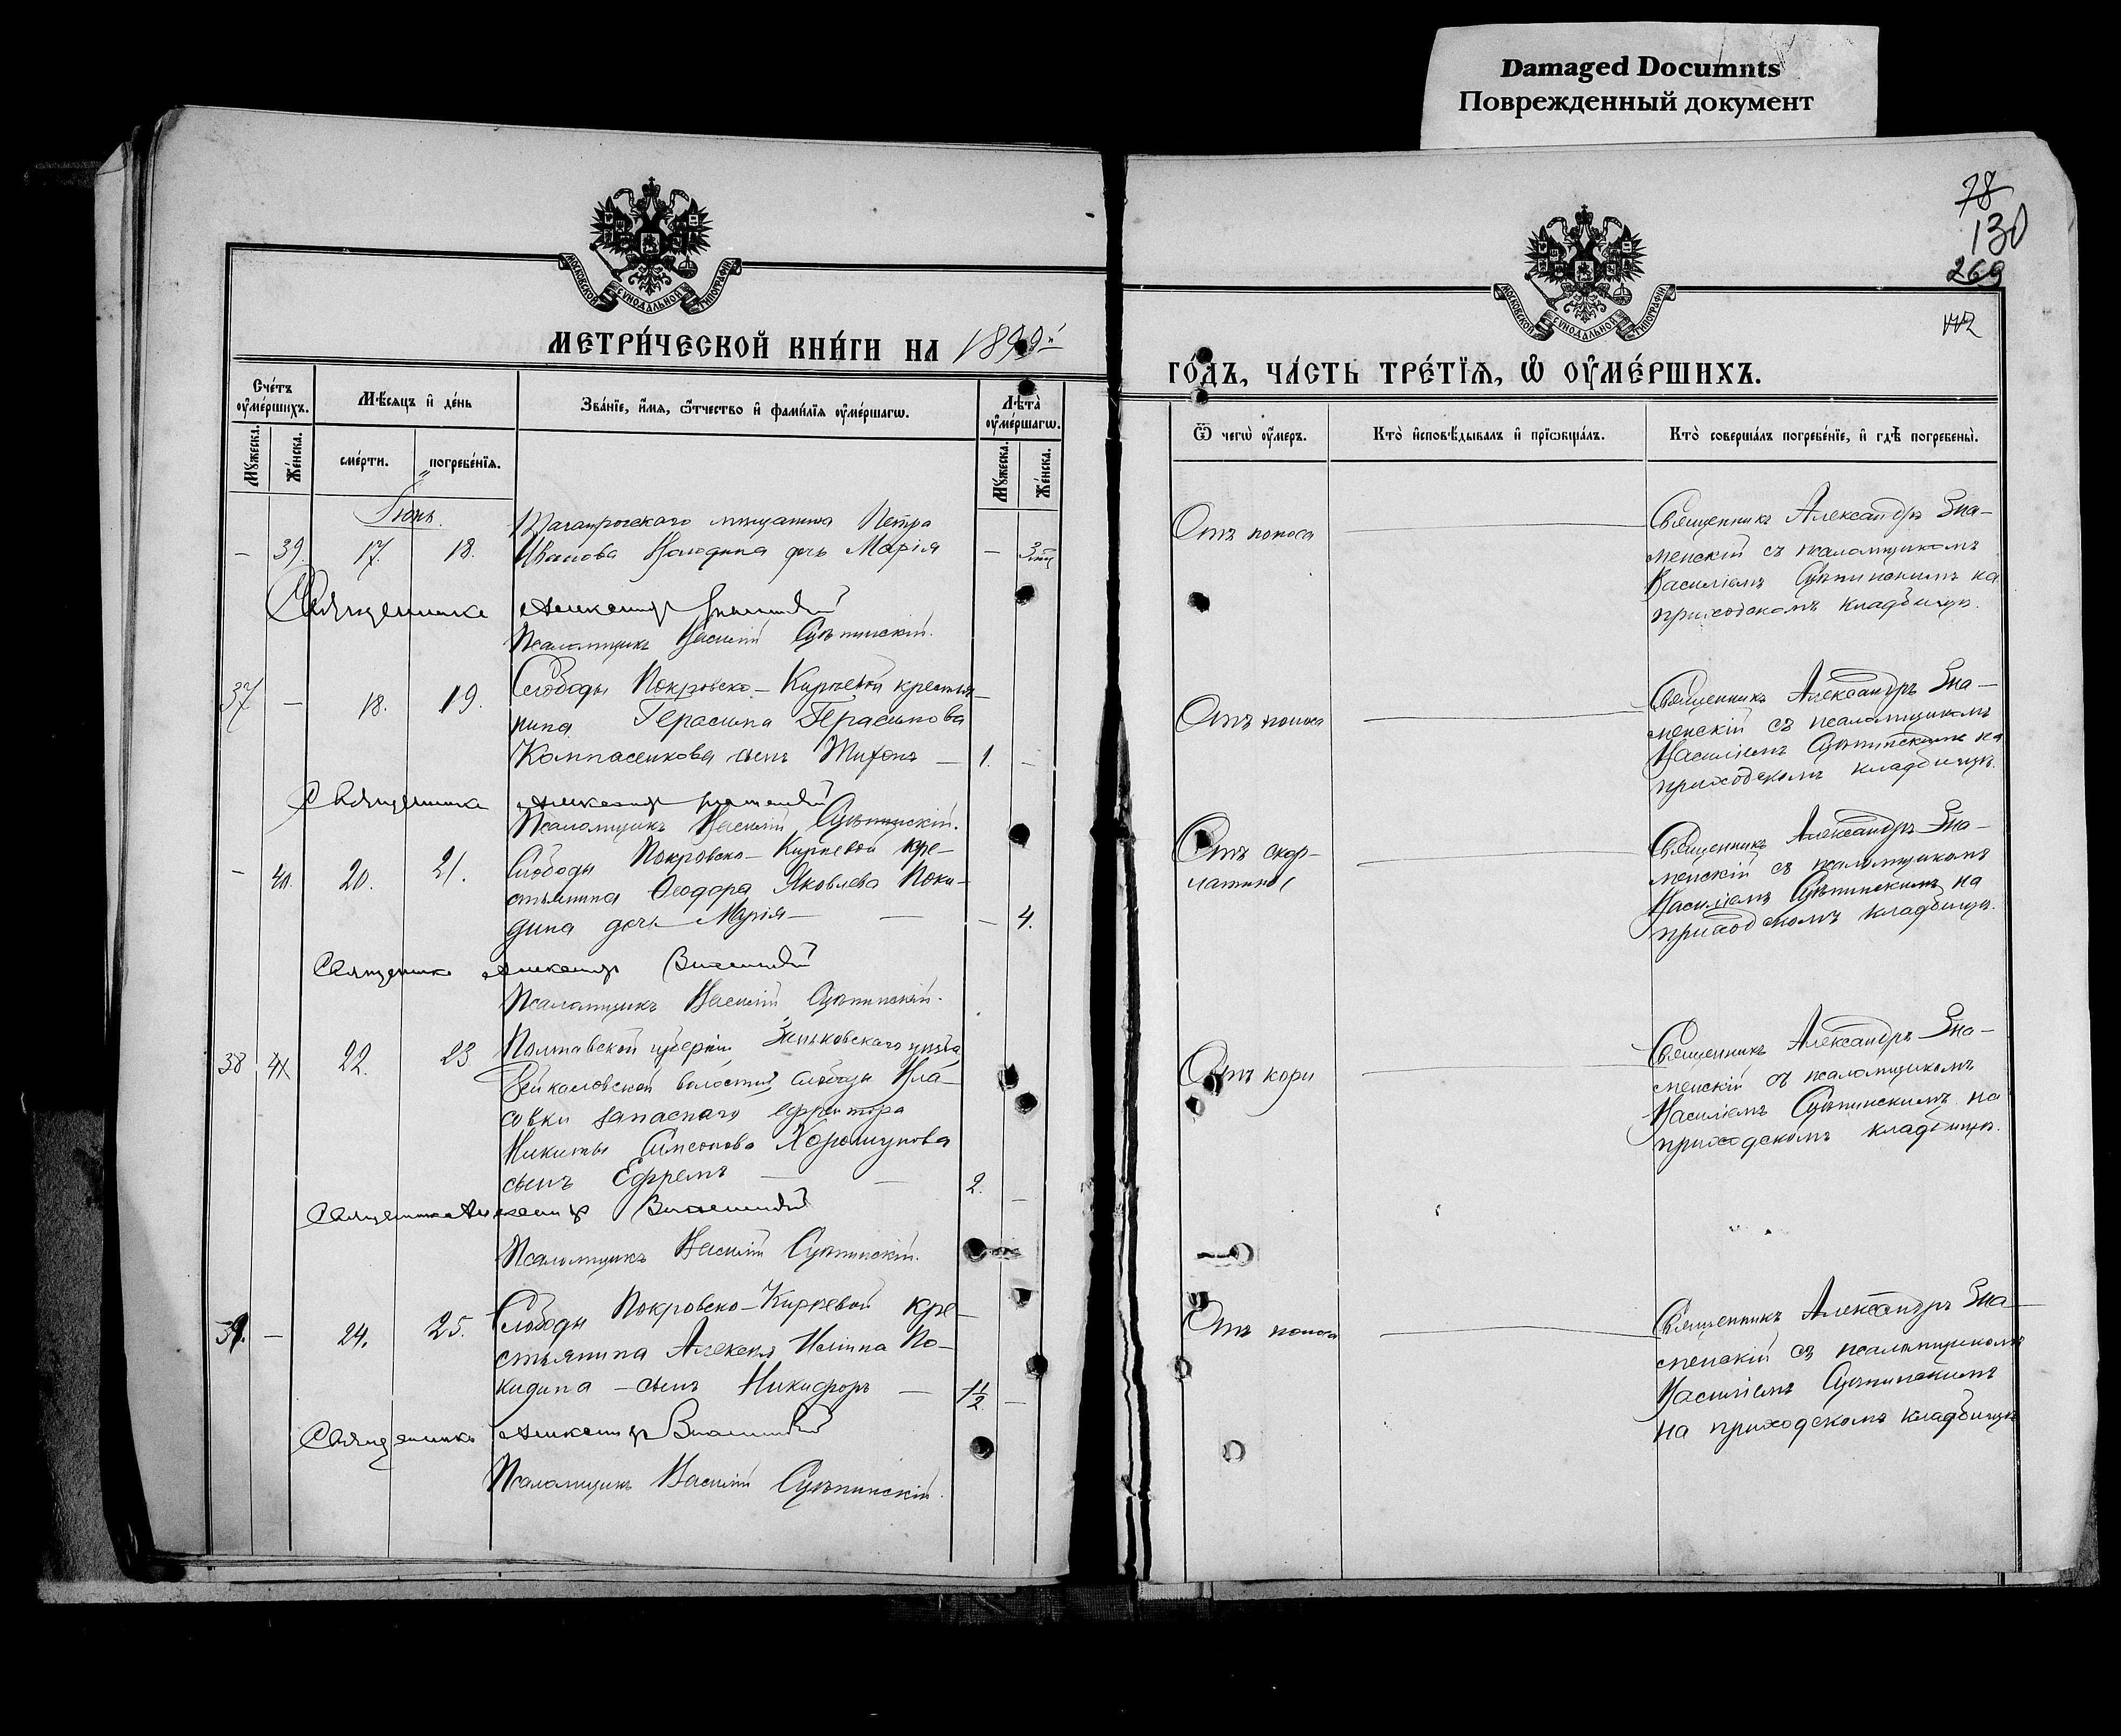 Damaged Documnts
Поврежденный документ
78
130
269
МОСКОВСКОЙ СѴНОДАЛЬНОЙ ТИПОГРАФІИ
МОСКОВСКОЙ СѴНОДАЛЬНОЙ ТИПОГРАФІИ
МЕТРИ́ЧЕСКОЙ КНИ́ГИ НА 1899й
ГО́ДЪ, ЧА́СТЬ ТРЕ́ТЇѦ, Ѡ ОУМЕ́РШИХЪ.
Сче́тъ оумершихъ.
Мѣсяцъ и де́нь
Зва́нїе, и́мя, ѿтчество и фами́лїя оуме́ршагѡ.
Лѣта̀ оуме́ршагѡ.
Му́жеска.
Же́нска.
сме́рти.
погребе́нїя.
Му́жеска.
Же́нска.
Ѿ чегѡ̀ оу́меръ.
Кто̀ исповѣдывалъ и прїѡбща́лъ.
Кто̀ соверша́лъ погребе́нїе, и гдѣ̀ погребены̀.
Іюнь.
Таганрогскаго мѣщанина Петра
— 39. 17. 18. Иванова дочь Марія —
Отъ поноса
Священникъ Александръ Зна-
менскій съ псаломщикомъ
Василіемъ на
приходскомъ кладбищѣ.
Священникъ Александр Знаменский
Псаломщикъ Василій
37 — 18. 19. Слободы Покровско-Киреевой крестья-
нина Герасима Герасимова
сынъ Тихонъ — 1. —
Отъ поноса
Священникъ Александръ Зна-
менскій съ псаломщикомъ
Василіемъ на
приходскомъ кладбищѣ.
Священникъ Александр Знаменский
Псаломщикъ Василій
— 40. 20. 21. Слободы Покровско-Киреевой кре-
стьянина Ѳеодора Яковлева Поки-
дина дочь Марія — — — 4.
Отъ скар-
латины
Священникъ Александръ Зна-
менскій съ псаломщикомъ
Василіемъ на
приходскомъ кладбищѣ.
Священникъ Александр Знаменский
Псаломщикъ Василій
38 22. 23 Полтавской губерніи Зеньковскаго уѣзда
волости, слободы Вла-
совки запаснаго ефрейтора
Никиты Симеонова Хорошунова
сынъ Ефремъ — — 2. —
Отъ кори
Священникъ Александръ Зна-
менскій съ псаломщикомъ
Василіемъ на
приходскомъ кладбищѣ.
Священникъ Александр Знаменский
Псаломщикъ Василій
39. — 24. 25. Слободы Покровско-Киреевой кре-
стьянина Алексѣя Ильина По-
кидина — сынъ Никифоръ — 1½ —
Отъ поноса
Священникъ Александръ Зна-
менскій съ псаломщикомъ
Василіемъ
на приходскомъ кладбищѣ
Священникъ Александр Знаменский
Псаломщикъ Василій